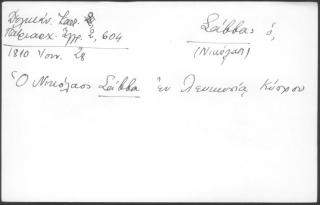 Δελικάν. Καν. β
Πατριαρχ. Ἔγγρ. 2, 604
1810 Ἰουν. 28
Σάββας ὁ,
(Νικόλαος)
Ὁ Νικόλαος Σάββα ἐν Λευκωσίᾳ Κύπρου